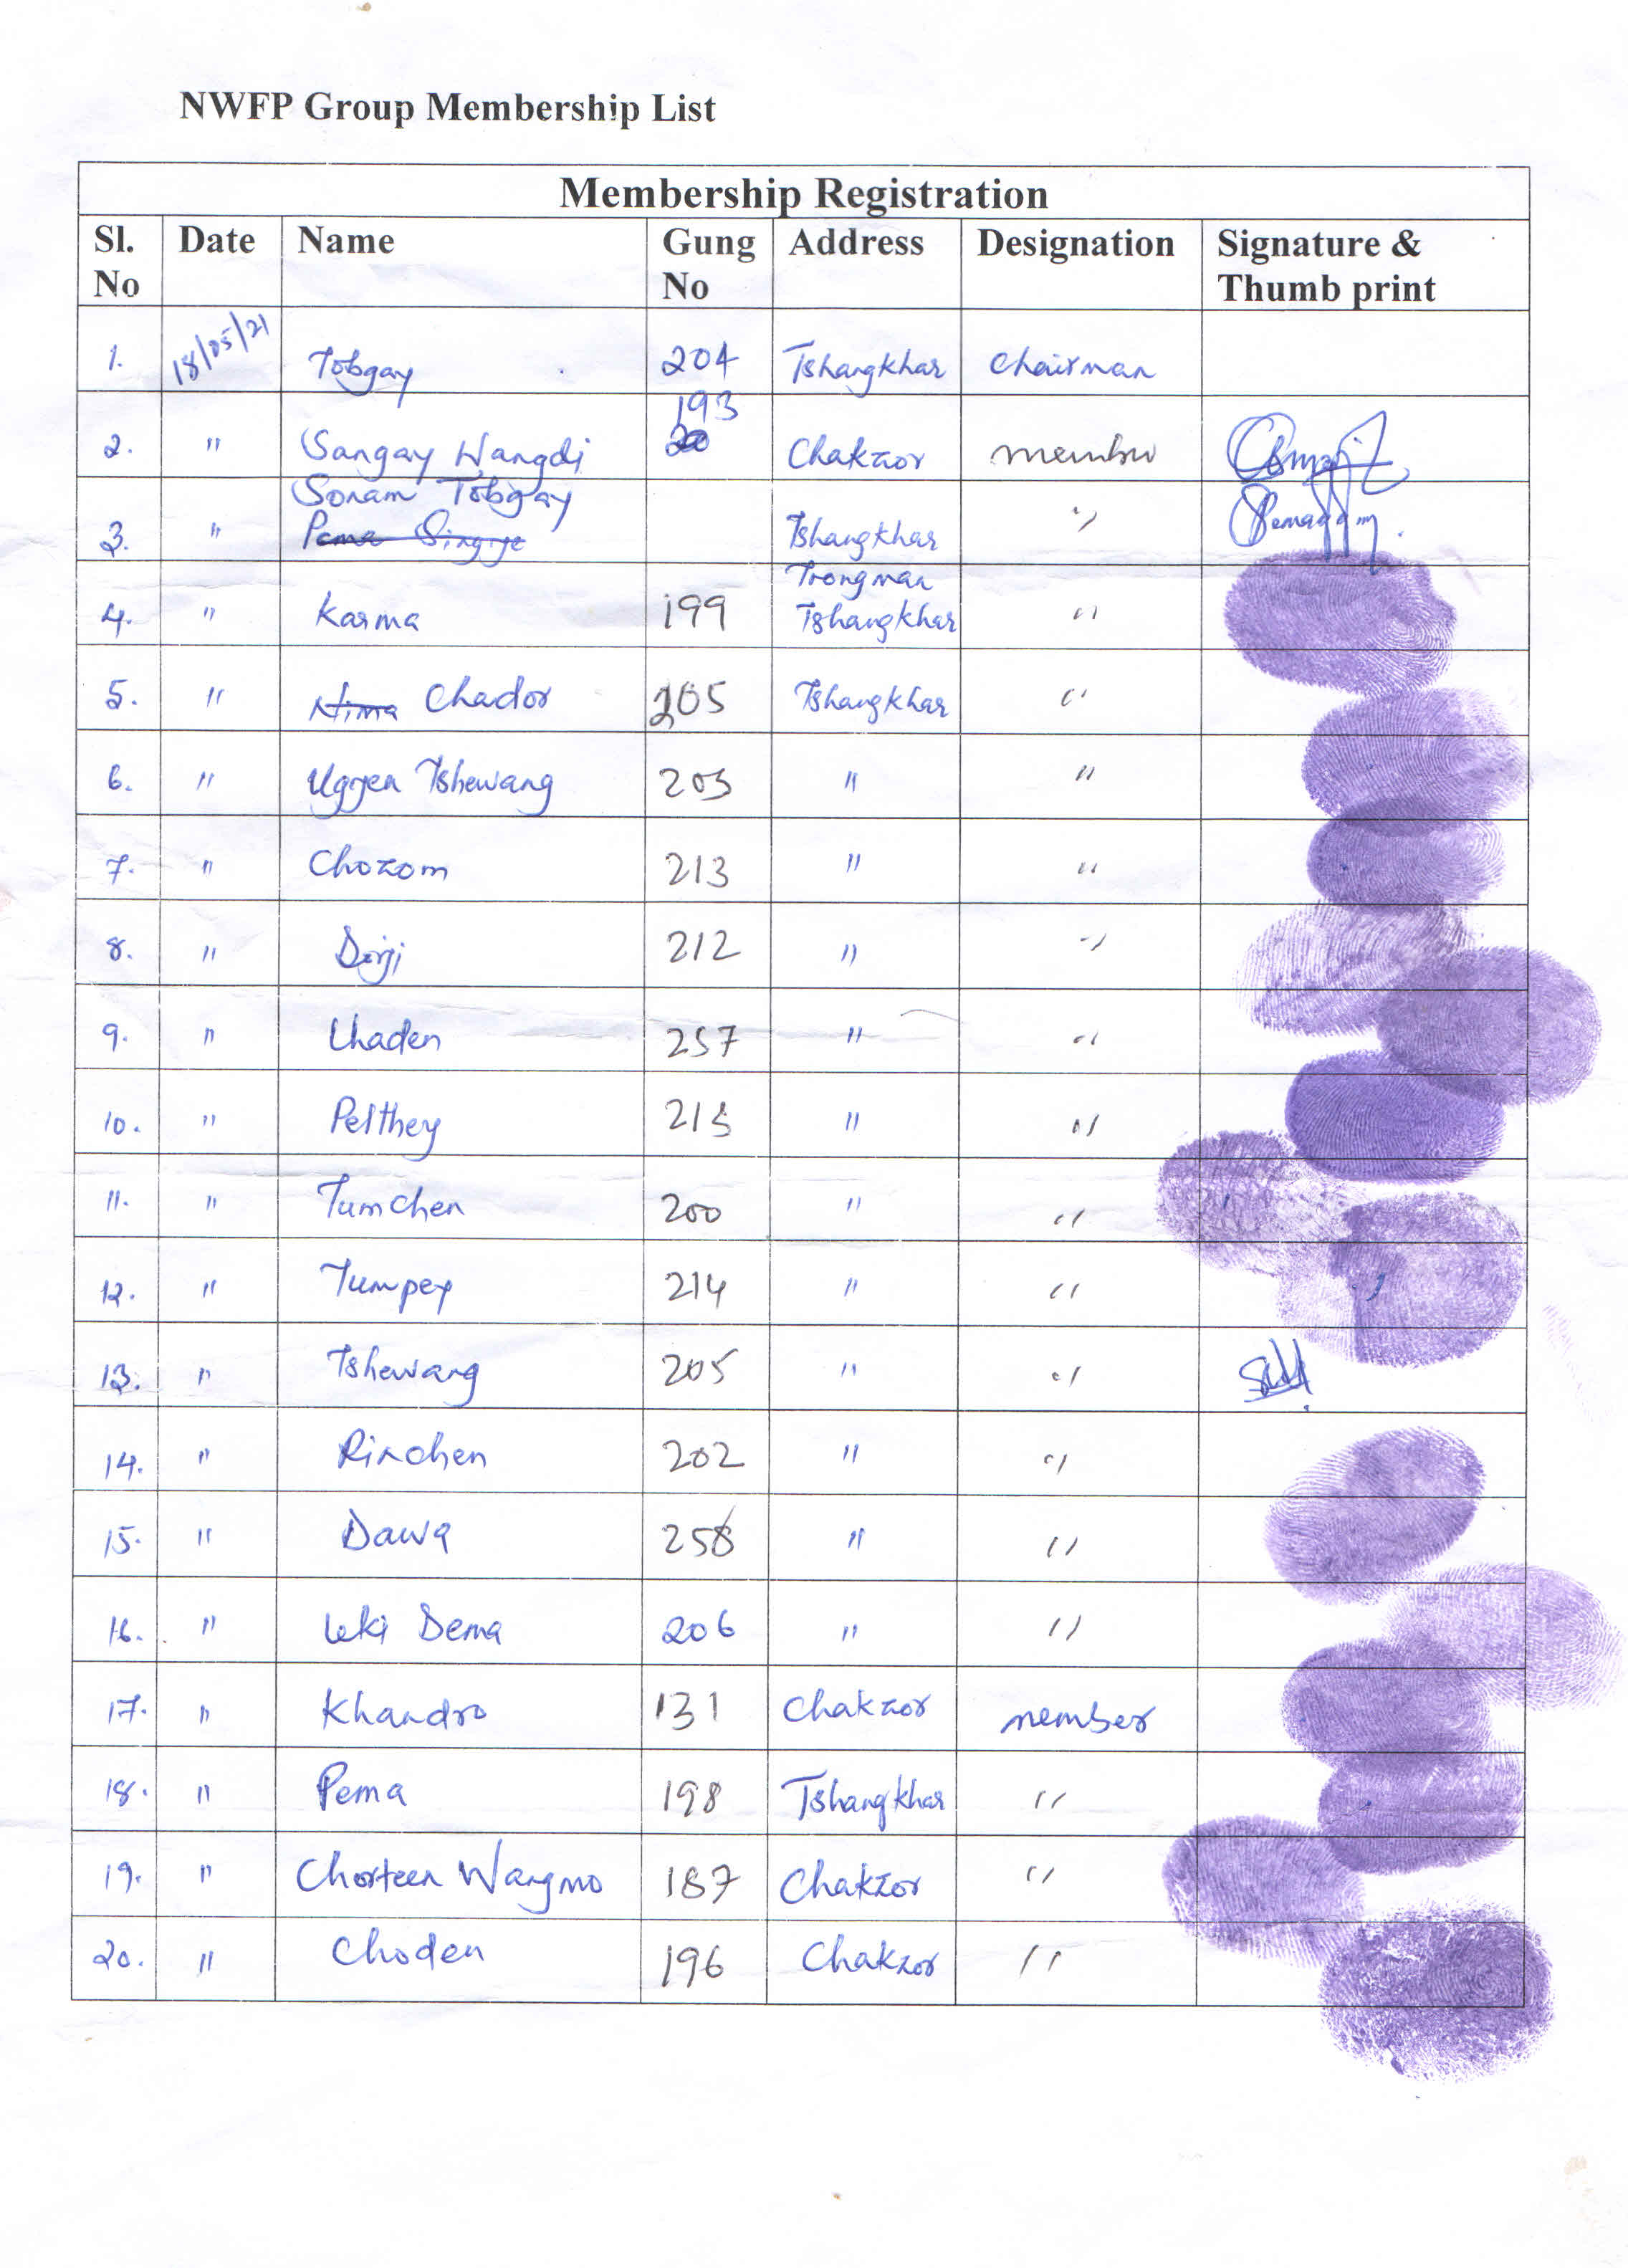 NWFP Group Membership List
Membership Registration
Sl. No Date Name Gung No Address Designation Signature & Thumb print
1. 18/05/21 Tobgay 204 Tshangkhar Chairman
2. " Sangay Wangdi 193 Chakzor member
3. " Sonam Tobgay Pema Singye Tshangkhar "
4. " Karma 199 Trongman Tshangkhar "
5. " Nima Chador 205 Tshangkhar "
6. " Ugyen Tshewang 203 " "
7. " Chozom 213 " "
8. " Dorji 212 " "
9. " Lhaden 257 " "
10. " Pelthey 215 " "
11. " Tumchen 200 " "
12. " Tumpey 214 " "
13. " Tshewang 205 " "
14. " Rinchen 202 " "
15. " Dawa 258 " "
16. " Leki Dema 206 " "
17. " Khandro 131 Chakzor member
18. " Pema 198 Tshangkhar "
19. " Chorteen Wangmo 187 Chakzor "
20. " Choden 196 Chakzor "